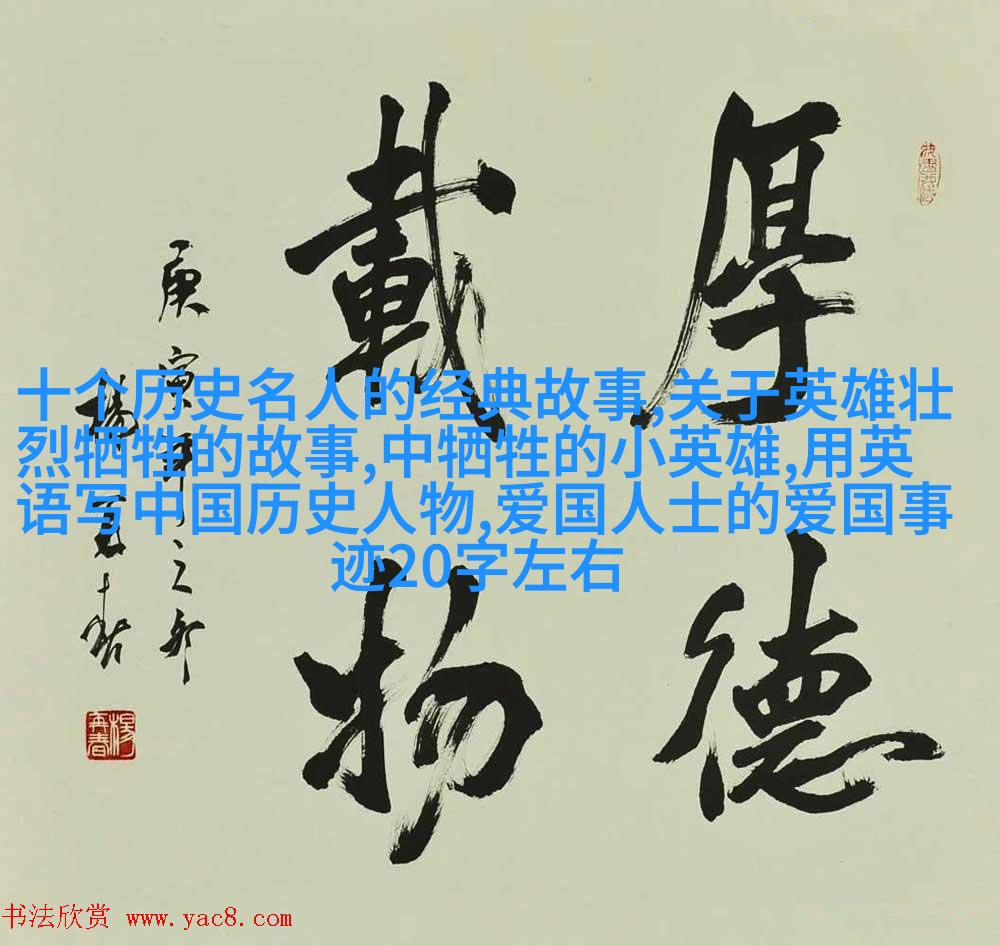 厚德
載物
庚寅
楊再春
楊再春
十个历史名人的经典故事,关于英雄壮
烈牺牲的故事,中牺牲的小英雄,用英
语写中国历史人物,爱国人士的爱国事
迹20字左右
书法欣赏 www.yac8.com